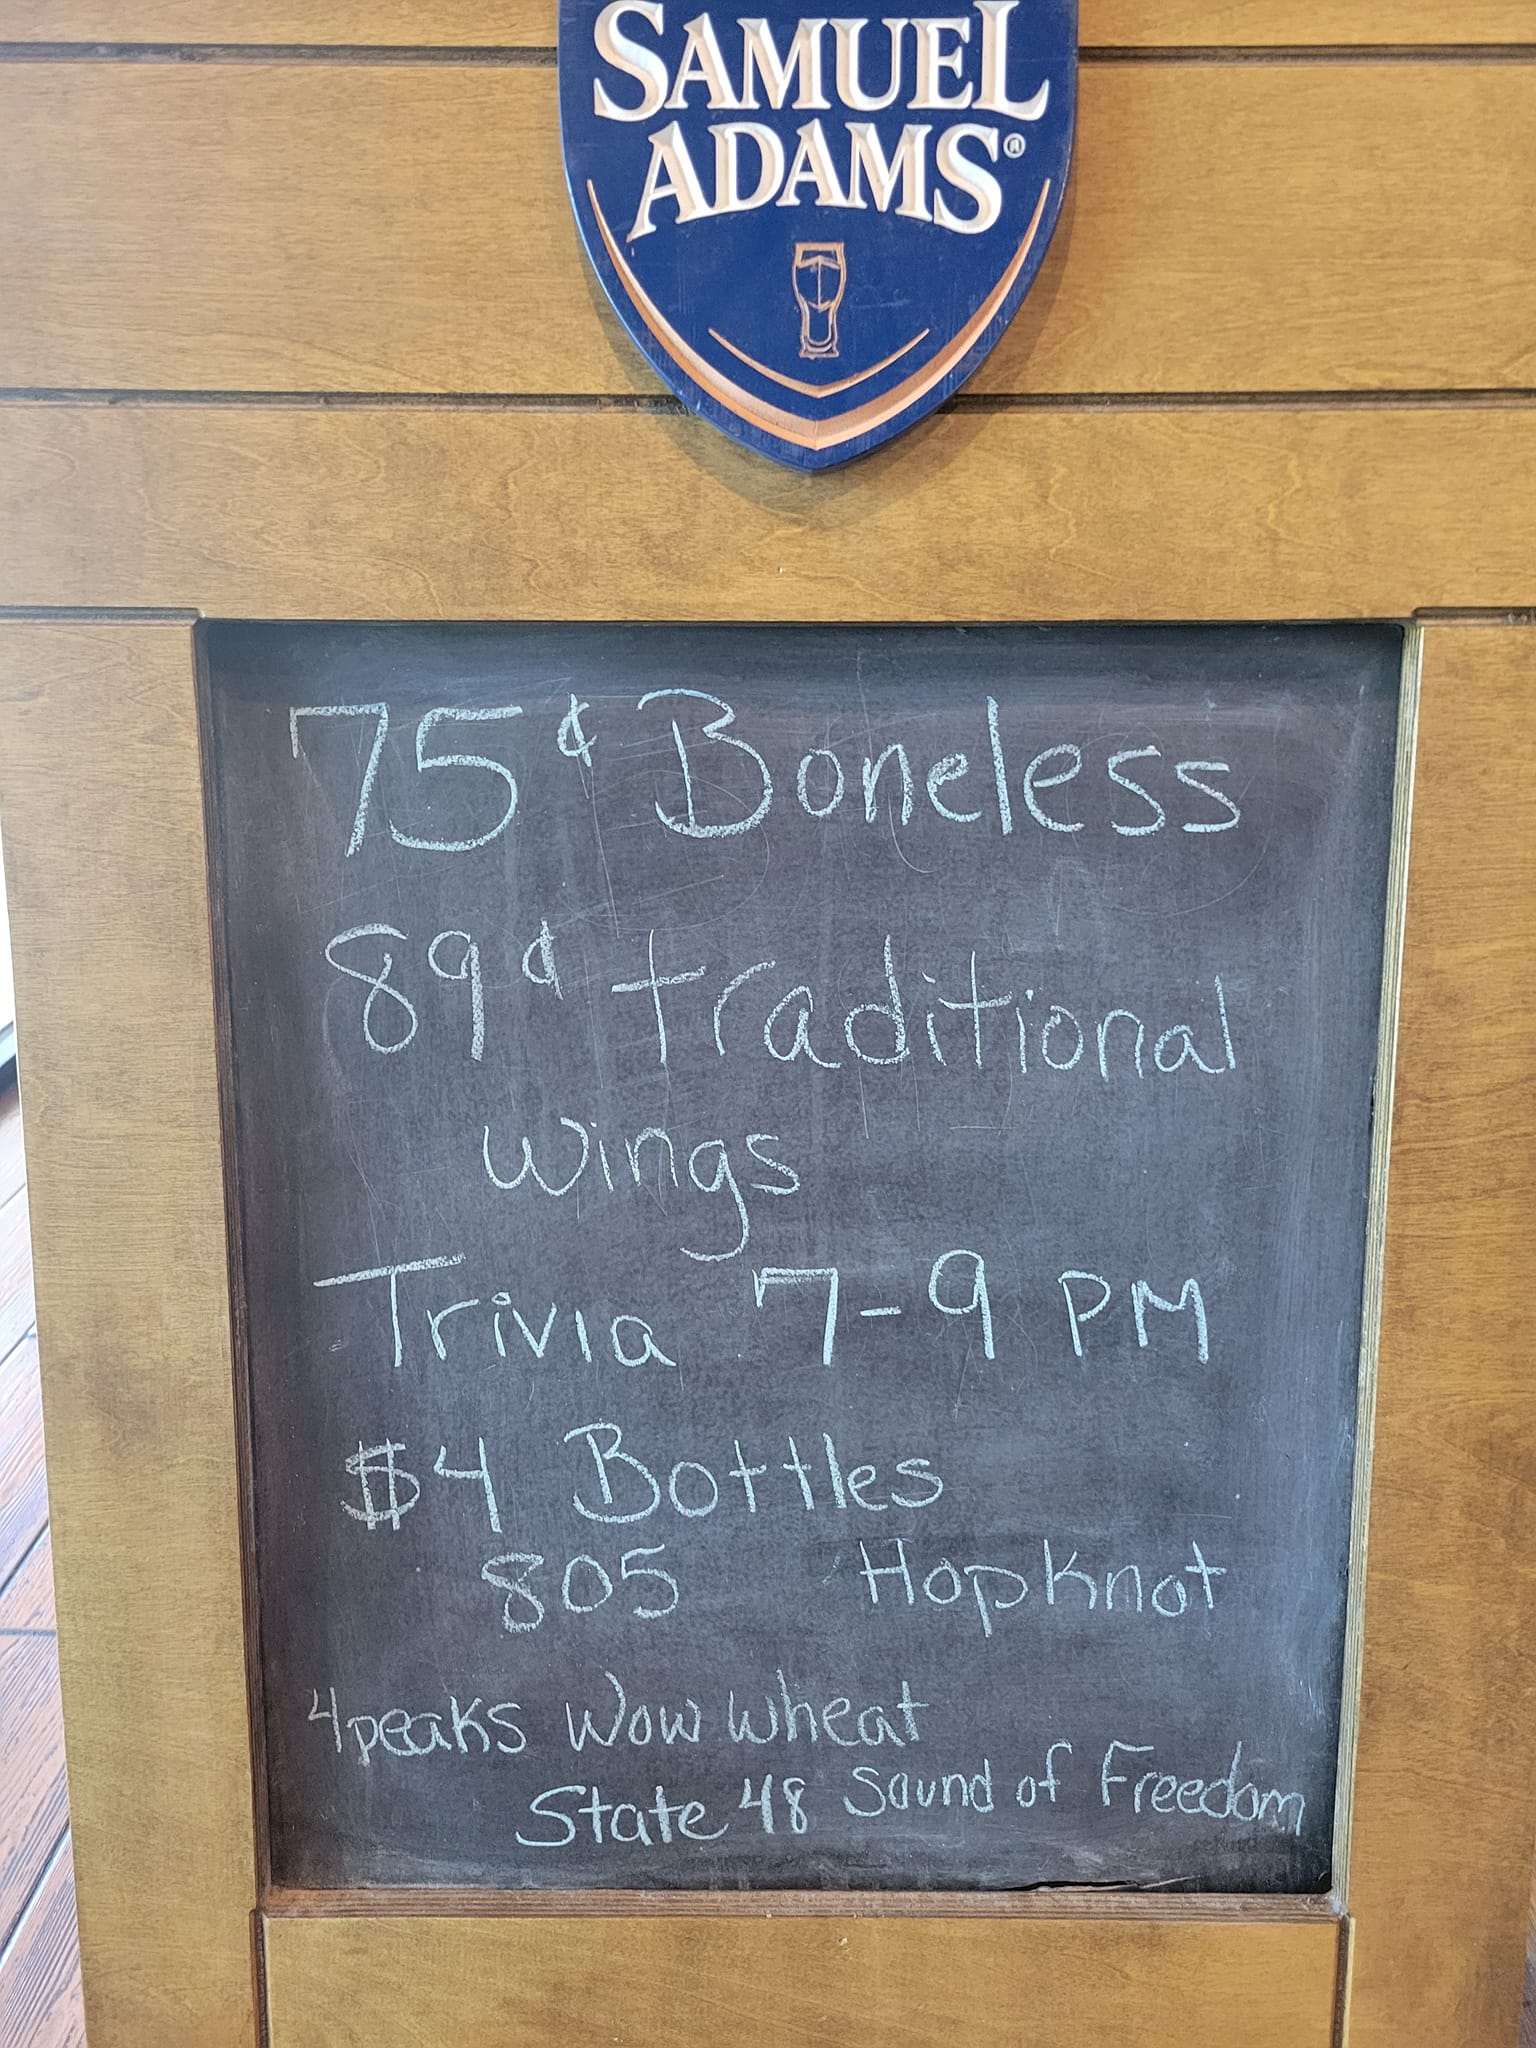 SAMUEL
ADAMS®
75¢ Boneless
89¢ traditional
wings
Trivia 7-9 PM
$4 Bottles
805 Hopknot
4peaks Wow Wheat
State 48 Sound of Freedom